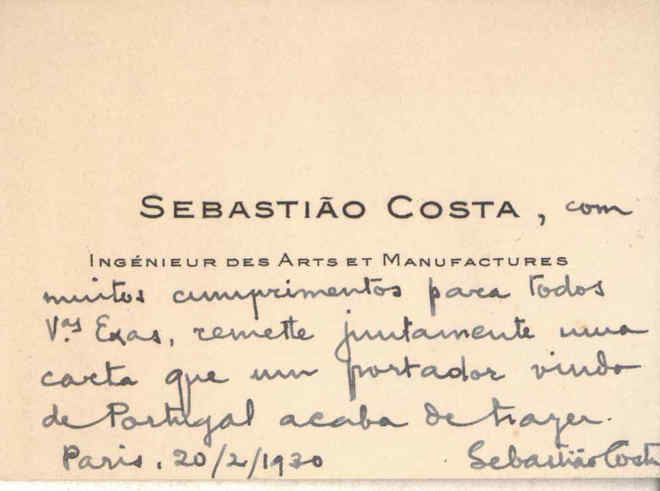 SEBASTIÃO COSTA, com
INGÉNIEUR DES ARTS ET MANUFACTURES
muitos cumprimentos para todos
V.as Exas, remette juntamente uma
carta que um portador vindo
de Portugal acaba de trazer.
Paris, 20/2/1930
Sebastião Costa